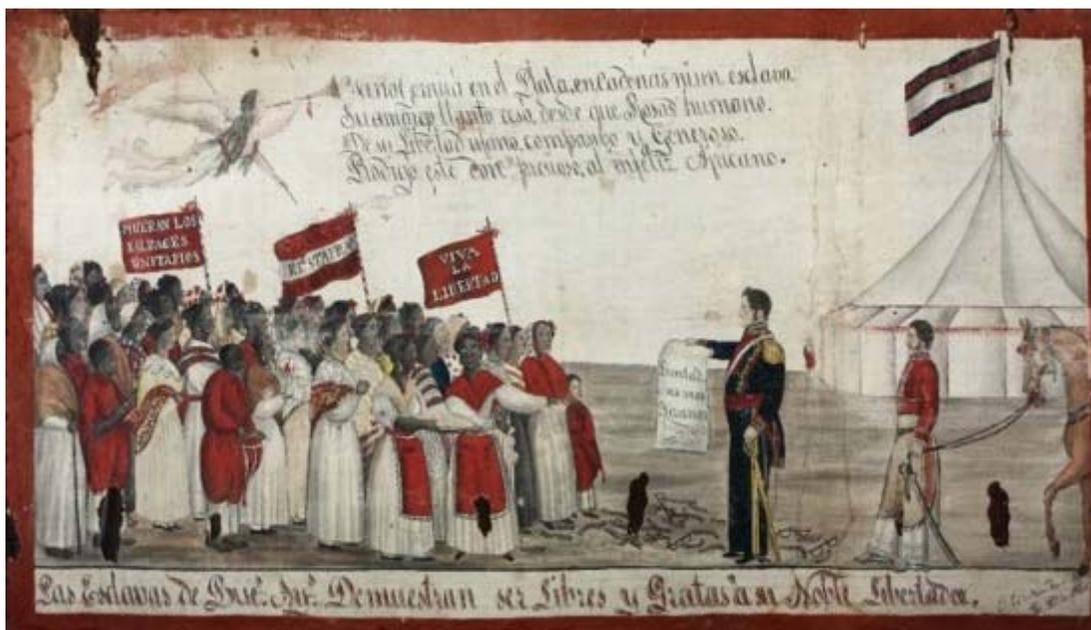 Ya no gemirá en el Plata, en cadenas ni un esclavo.
Su amargo llanto cesó, desde que Rosas humano.
De su Libertad ufano, compasibo y Generoso.
Prodigó este don precioso, al infeliz Africano.
MUERAN LOS
SALBAGES
UNITARIOS
VIVA
LA
LIBERTAD
Libertad
no mas
tiranos
Las Esclavas de Bues. Ays. Demuestran ser Libres y Gratas á su Noble Libertador.